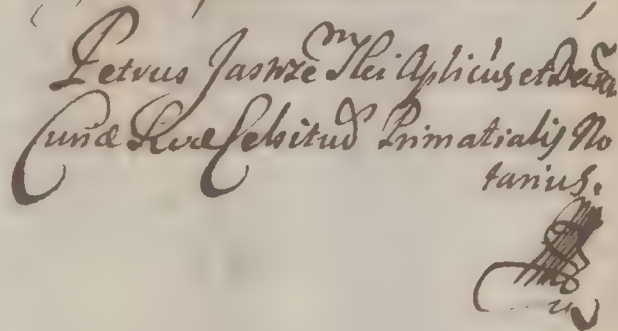 Petrus Jastrzęmski Aplicus et
Curiæ Suæ Celsitud Primatialis No
tarius.